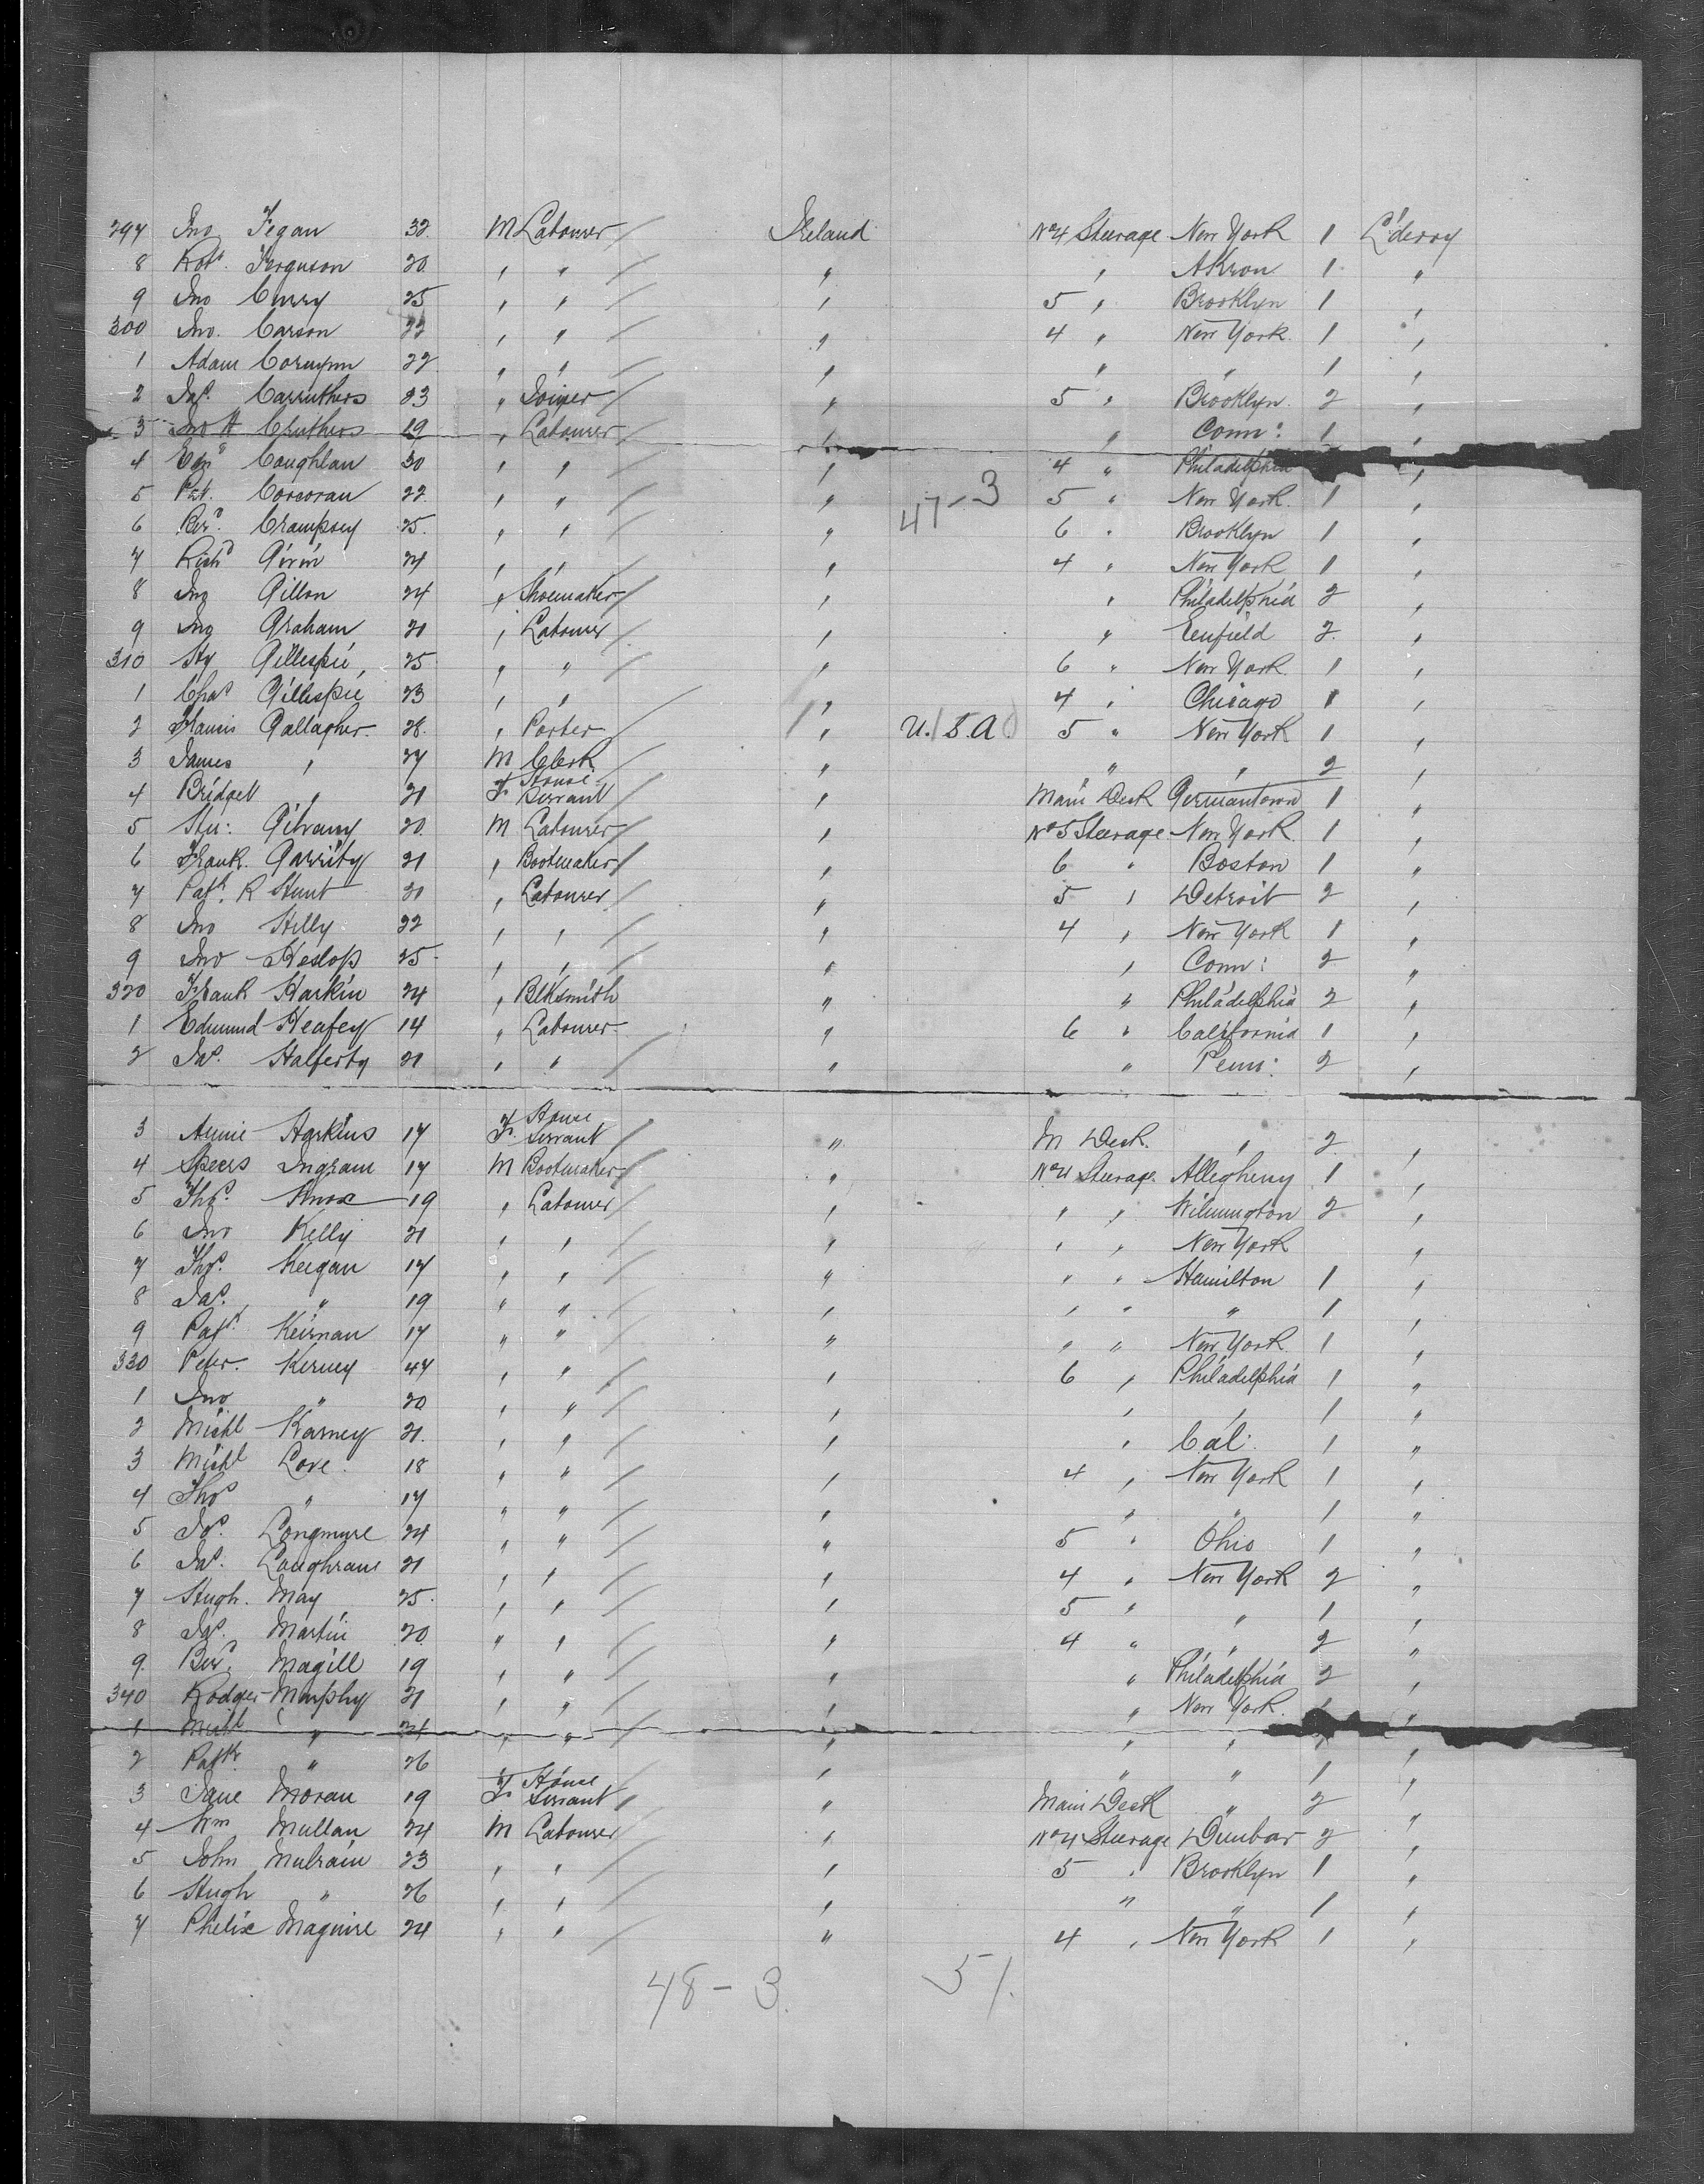 297 Jno Fegan 32 M Labourer / Ireland No 4 Steerage New York 1 L'derry
8 Robt. Ferguson 20 " " / " " Akron 1 "
9 Jno Curry 25 " " / " 5 " Brooklyn 1 "
300 Jno. Carson 22 " " / " 4 " New York 1 "
1 Adam 22 " " / " " " 1 "
2 Jas. Carruthers 23 " Joiner / " 5 " Brooklyn 2 "
3 Jno H 19 " Labourer / " " Conn: 1 "
4 Coughlan 30 " " / " 4 " Philadelphia "
5 Pat. Corcoran 22 " " / " 5 " New York 1 "
47-3
6 Crampsey 25 " " / " 6 " Brooklyn 1 "
7 Richd Girvin 24 " " / " 4 " New York 1 "
8 Jno Gillon 24 " Shoemaker / " " Philadelphia 2 "
9 Jno Graham 21 " Labourer / " " Enfield 2 "
310 Hy Gillespie 25 " " / " 6 " New York 1 "
1 Chas Gillespie 23 " " / " 4 " Chicago 1 "
2 Francis Gallagher 28 " Porter / " U.S.A. 5 " New York 1 "
3 James " 27 M Clerk " " " 2 "
4 Bridget " 21 F House Servant / " Main Deck Germantown 1 "
5 20 M Labourer / " No 5 Steerage New York 1 "
6 Frank Garrity 21 " Bootmaker / " 6 " Boston 1 "
7 Patk. R Hunt 21 " Labourer / " 5 " Detroit 2 "
8 Jno Hilly 22 " " / " 4 " New York 1 "
9 Jno Heslop 25 " " / " " Conn: 2 "
320 Frank Harkin 24 " Blksmith " " Philadelphia 2 "
1 Edmund Heafey 14 " Labourer " 6 " California 1 "
2 Jas. Halferty 21 " " / " " Penn: 2 "
3 Annie Harkins 17 F House Servant / " M Deck " 2 "
4 Speers Ingram 17 M Bootmaker / " No 4 Steerage Allegheny 1 "
5 Thos. Knox 19 " Labourer / " " " Wilmington 2 "
6 Jno Kelly 21 " " / " " " New York "
7 Thos. Keegan 17 " " / " " " Hamilton 1 "
8 Jas. " 19 " " / " " " " 1 "
9 Patk. Keirnan 17 " " / " " " New York 1 "
330 Peter Kerney 47 " " / " 6 " Philadelphia 1 "
1 Jno " 20 " " / " " " 1 "
2 Michl Karney 21 " " / " " Cal: 1 "
3 Michl Love 18 " " / " 4 " New York 1 "
4 Thos " 17 " " / " " " 1 "
5 Longmure 24 " " / " 5 " Ohio 1 "
6 Jas. Loughrane 21 " " / " 4 " New York 2 "
7 Hugh May 25 " " / " 5 " " 1 "
8 Jas. Martin 20 " " / " 4 " " 2 "
9 Magill 19 " " / " " Philadelphia 2 "
340 Rodger Murphy 21 " " / " " New York "
1 Michl " 24 " " / " " " "
2 Patk " 26 " " " 1 "
3 Jane Moran 19 F House Servant / " Main Deck " 2 "
4 Wm Mullan 24 M Labourer / " No 4 Steerage Dunbar 2 "
5 John Mulrain 23 " " / " 5 " Brooklyn 1 "
6 Hugh " 26 " " / " " " 1 "
7 Phelix Maguire 24 " " / " 4 " New York 1 "
48-3. 51.